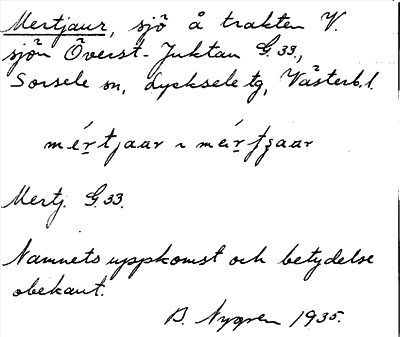 Mertjaur, sjö å trakten V.
sjön Överst-Juktan G.33.,
Sorsele sn, Lycksele tg, Västerb.l.
mértjaar ~
Mertj. G.33.
Namnets uppkomst och betydelse
obekant.
B. Nygren 1935.